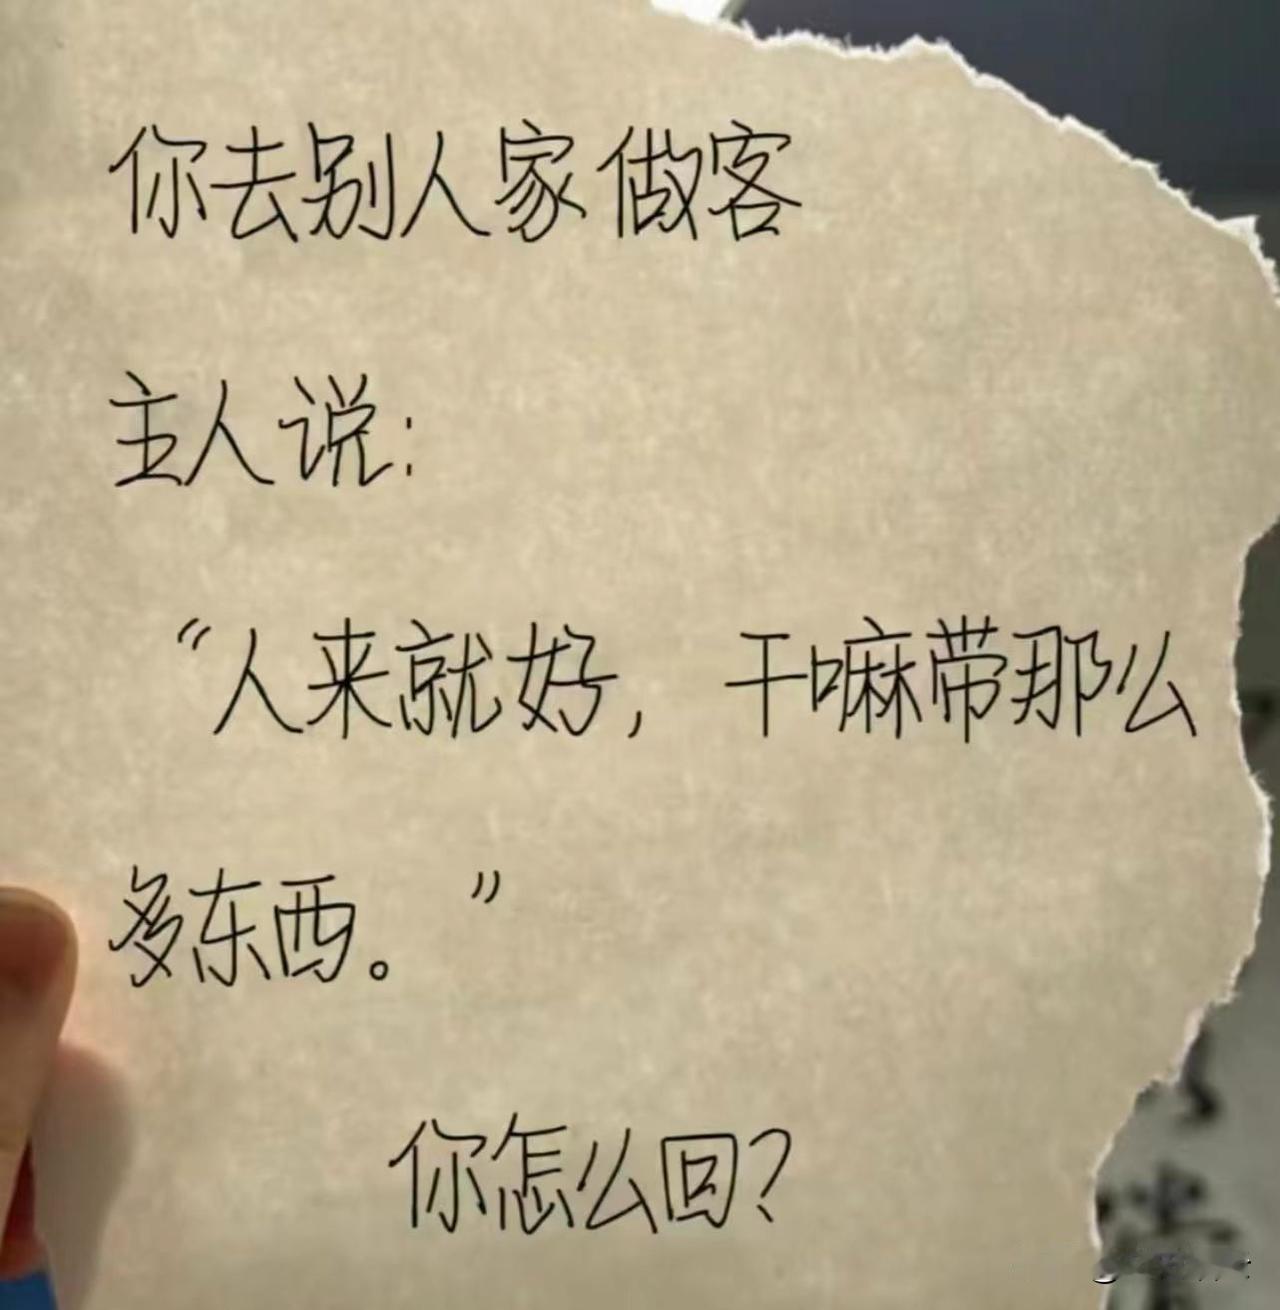 你去别人家做客
主人说：
“人来就好，干嘛带那么
多东西。”
你怎么回？